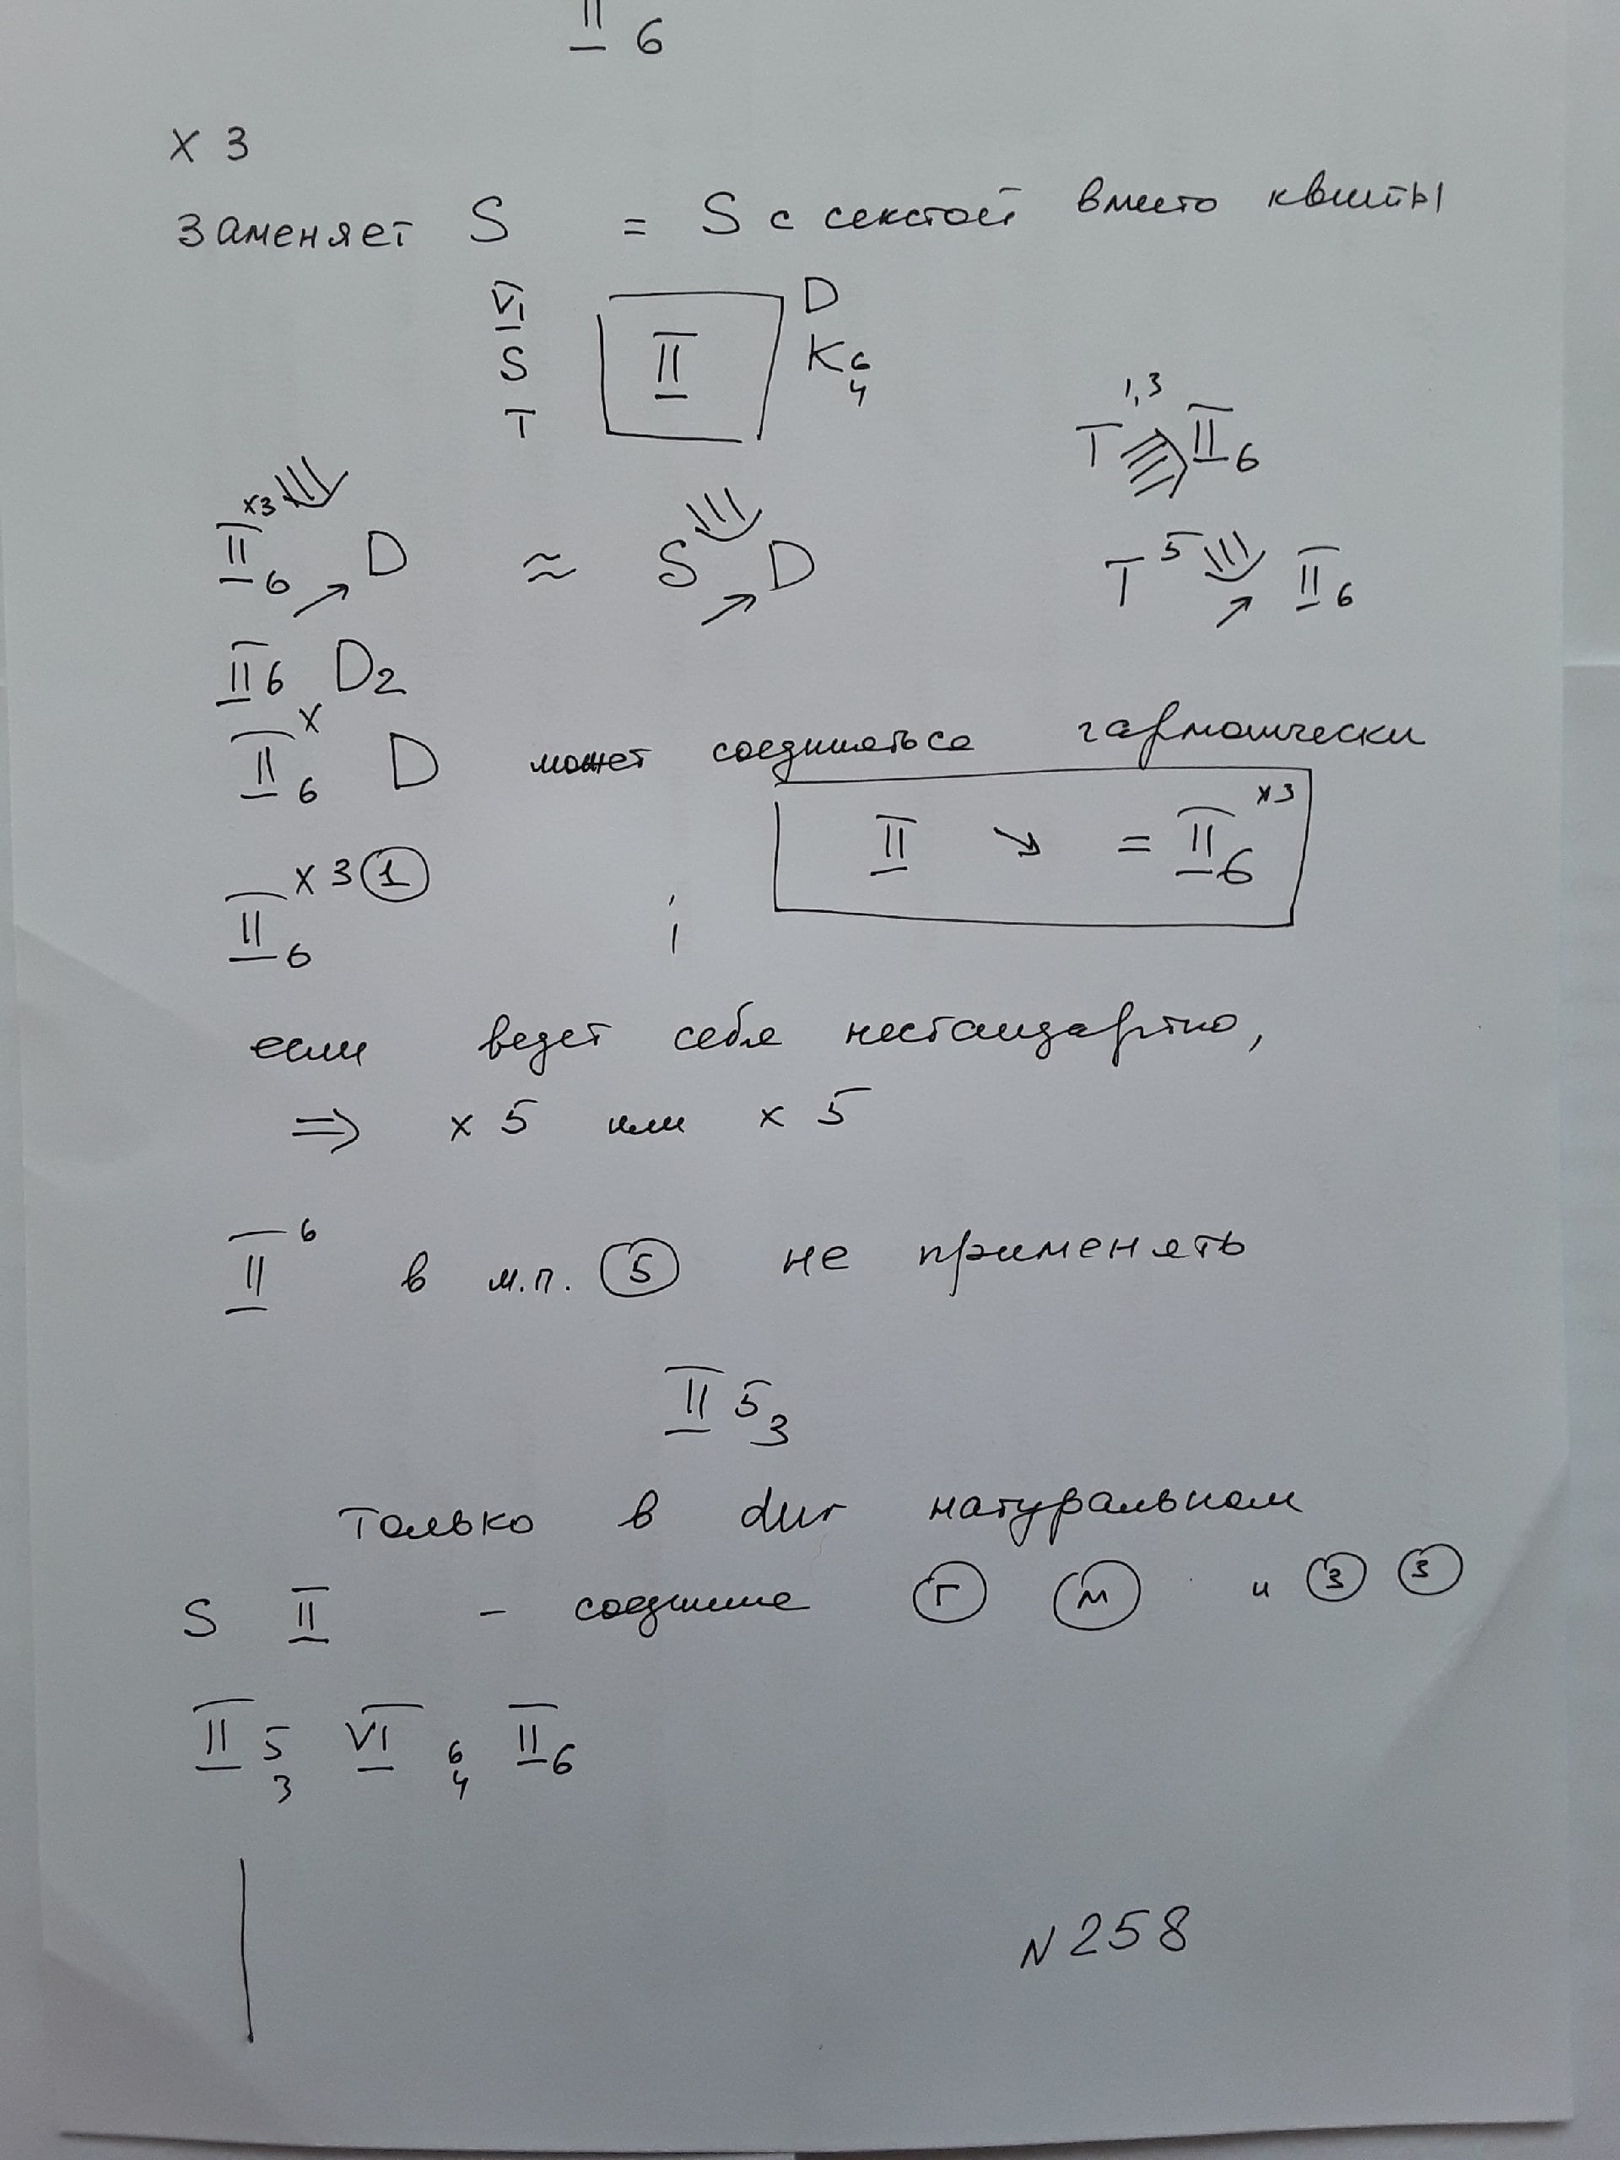 II 6
x 3
Заменяет S = S с секстой вместо квинты
VI D
S II K 6 4
T
T 1,3 II 6
II 6 x3 D ≈ S D
T 5 II 6
II 6 D2
II 6 x D может соединяться гармонически
II ↘ = II 6 x3
II 6 x 3 ①
если ведет себя нестандартно,
⇒ x 5 или x 5
II 6 в м.п. ⑤ не применять
II 5 3
Только в dur натуральном
S II – соединие Ⓖ Ⓜ и ③ ③
II 5 3 VI 6 4 II 6
N 258